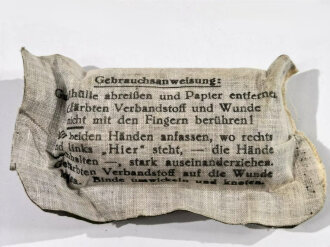 Gebrauchsanweisung:
hülle abreißen und Papier entfernen
färbten Verbandstoff und Wunde
nicht mit den Fingern berühren!
beiden Händen anfassen, wo rechts
links „Hier" steht, — die Hände
halten —, stark auseinanderziehen.
färbten Verbandstoff auf die Wunde
Binde umwickeln und knoten.